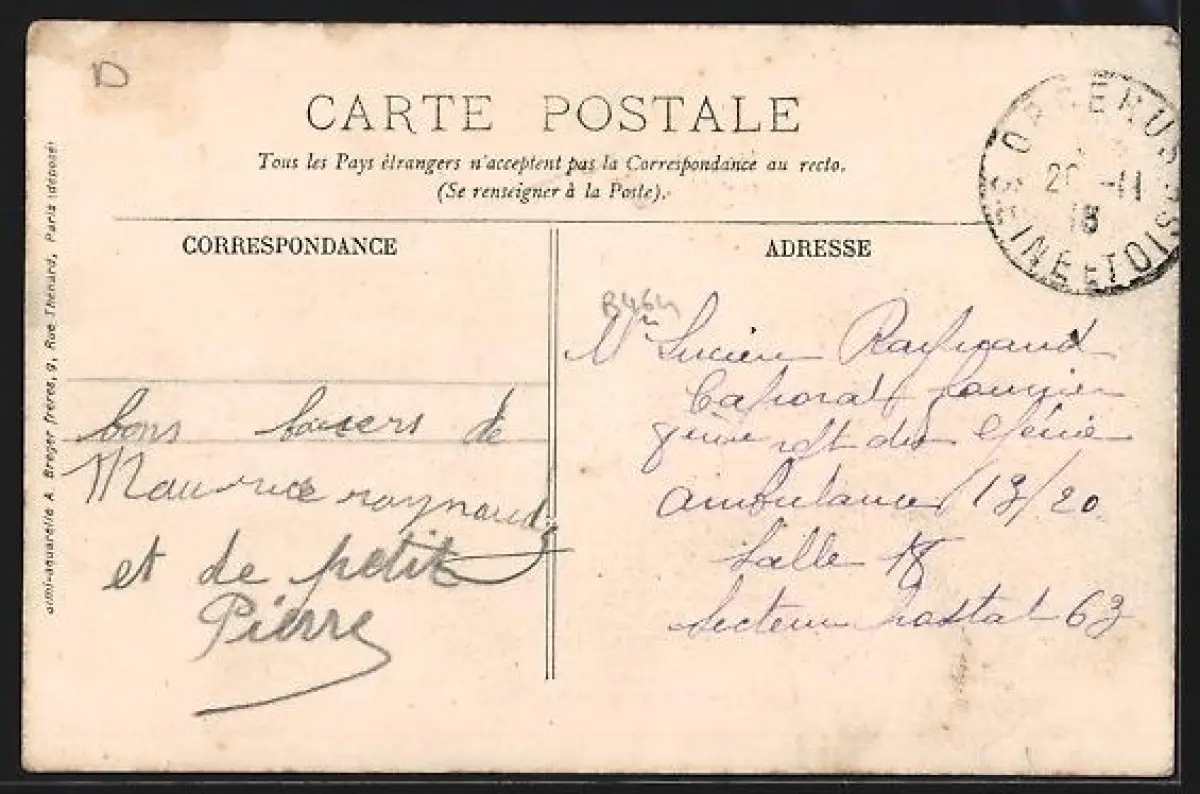 D
CARTE POSTALE
Tous les Pays étrangers n'acceptent pas la Correspondance au recto.
(Se renseigner à la Poste).
ORGERUS
20 -11
15
SEINE ET OISE
CORRESPONDANCE
ADRESSE
bons baisers de
Maurice raynaud
et de petit
Pierre
Mr Lucien Raynaud
Caporal fourrier
génie
ambulance 13/20
Salle 18
Secteur postal 63
A. Breger frères, 9, Rue Thénard, Paris (déposé)